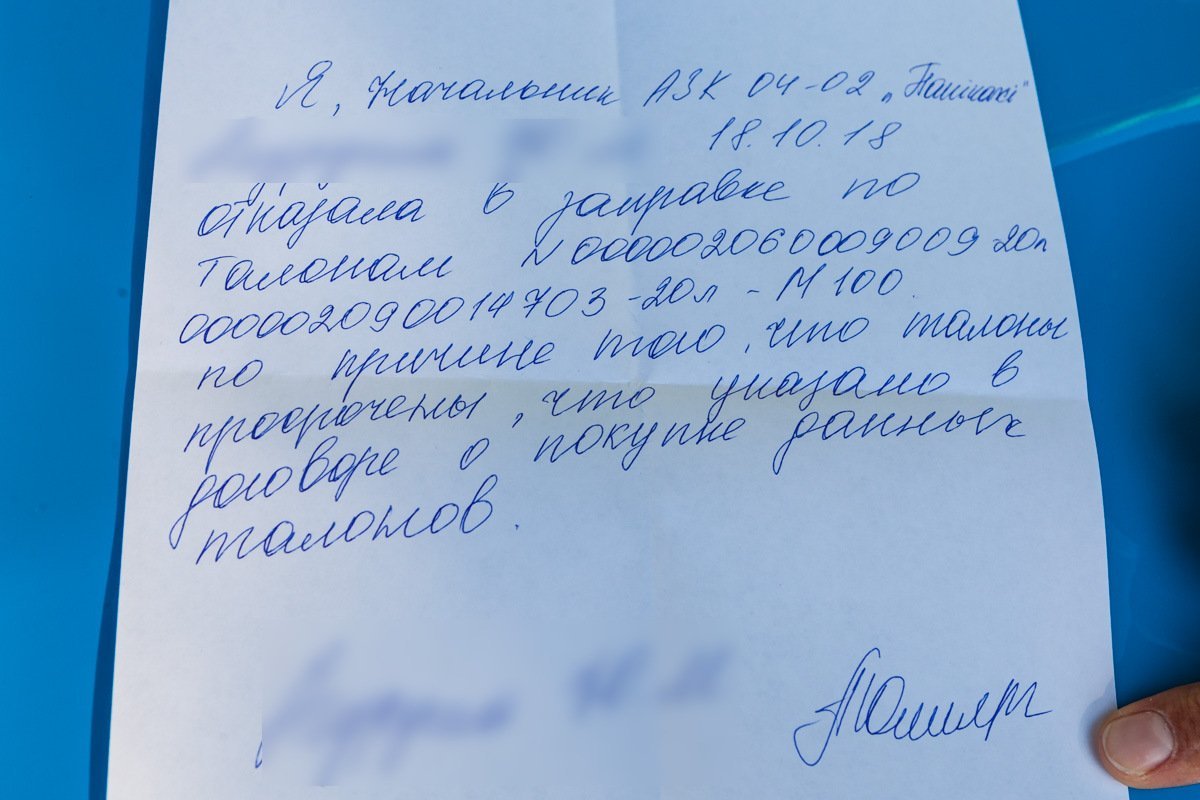 Я, Начальник АЗК 04-02
18.10.18
отказала в заправке по
талонам N 0000020600090​09 20л
000002090014703 -20л - М 100.
по причине того, что талоны
просрочены, что указано в
договоре о покупке данных
талонов.